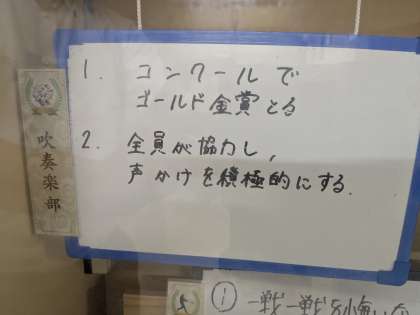 吹奏楽部
1. コンクールで
ゴールド金賞とる
2. 全員が協力し,
声かけを積極的にする.
① 一戦一戦を